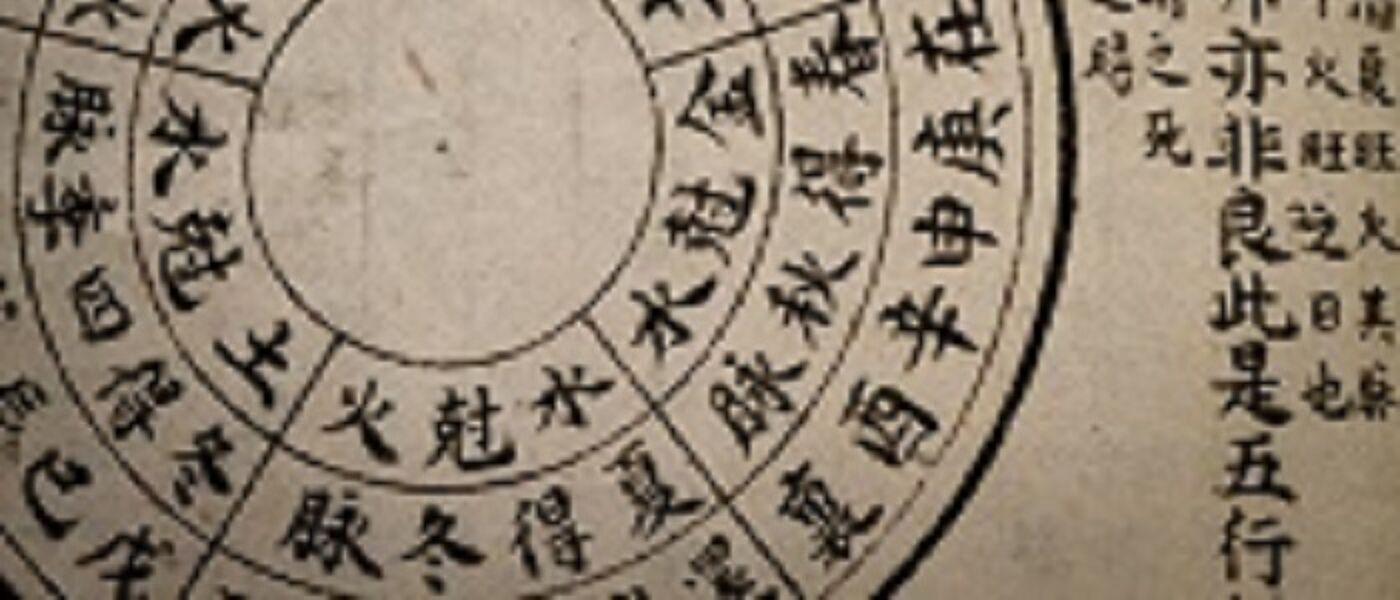 夏旺火其
火旺之日也
亦非良此是五行
之死
在庚申辛酉裏
春得秋脉
金尅水
夏得冬脉
水尅火
戊己
冬得四季脉
土尅水
火